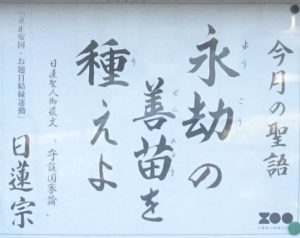 今月の聖語
永劫の
ようこう
善苗を
ぜんみょう
種えよ
う
日蓮聖人御遺文 守護国家論
「立正安国・お題目結縁運動」
日蓮宗